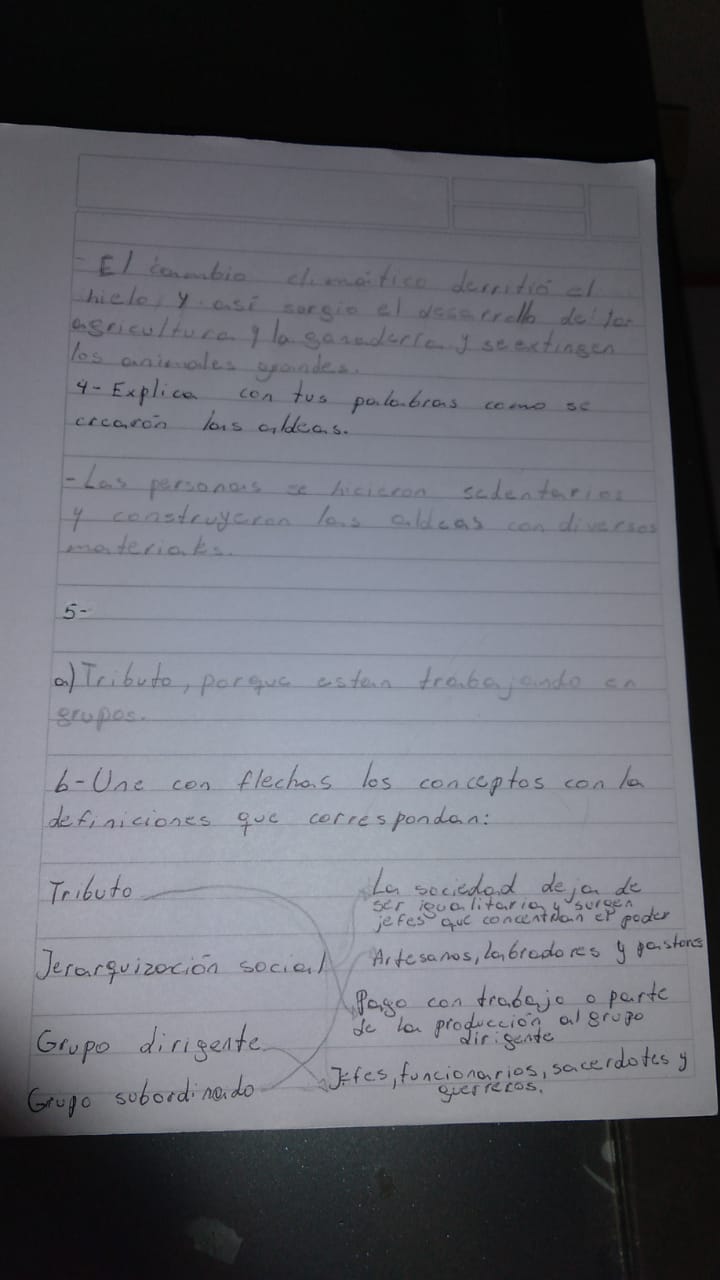 - El cambio climático derritió el
hielo, y así surgio el desarrollo de la
agricultura y la ganadería y se extingen
los animales grandes.
4- Explica con tus palabras como se
crearón las aldeas.
- Las personas se hicieron sedentarios
y construyeron las aldeas con diversos
materiales.
5-
a) Tributo, porque estan trabajando en
grupos.
b- Une con flechas los conceptos con la
definiciones que correspondan:
Tributo
La sociedad deja de
ser igualitaria y surgen
jefes que concentran el poder
Jerarquización social
Artesanos, labradores y pastores
Pago con trabajo o parte
de la producción al grupo
dirigente
Grupo dirigente
Jefes, funcionarios, sacerdotes y
guerreros.
Grupo subordinado